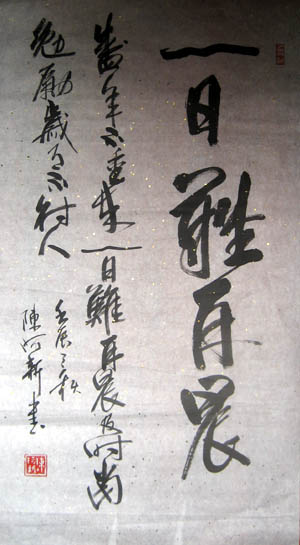 一日難再晨
盛年不重來一日難再晨及時當
勉勵歲月不待人
壬辰之秋
陳新書